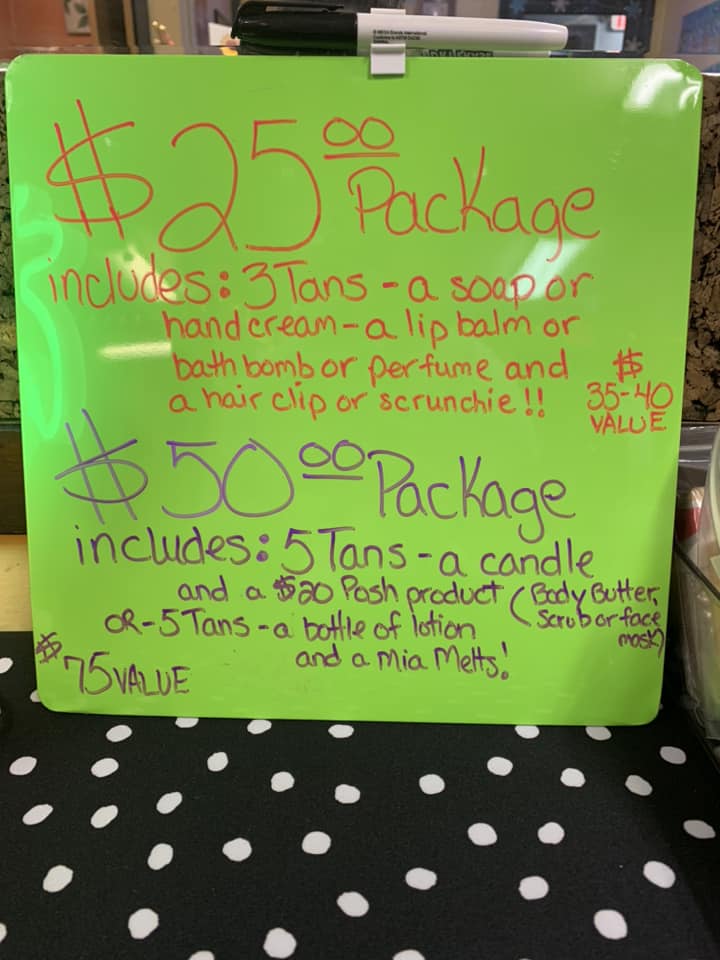 $25.00 Package
includes: 3 Tans - a soap or
hand cream - a lip balm or
bath bomb or perfume and
a hair clip or scrunchie!!
$
35-40
VALUE
$50.00 Package
includes: 5 Tans - a candle
and a $20 Posh product (Body Butter,
Scrub or face
mask)
OR - 5 Tans - a bottle of lotion
and a Mia Melts!
$75 VALUE